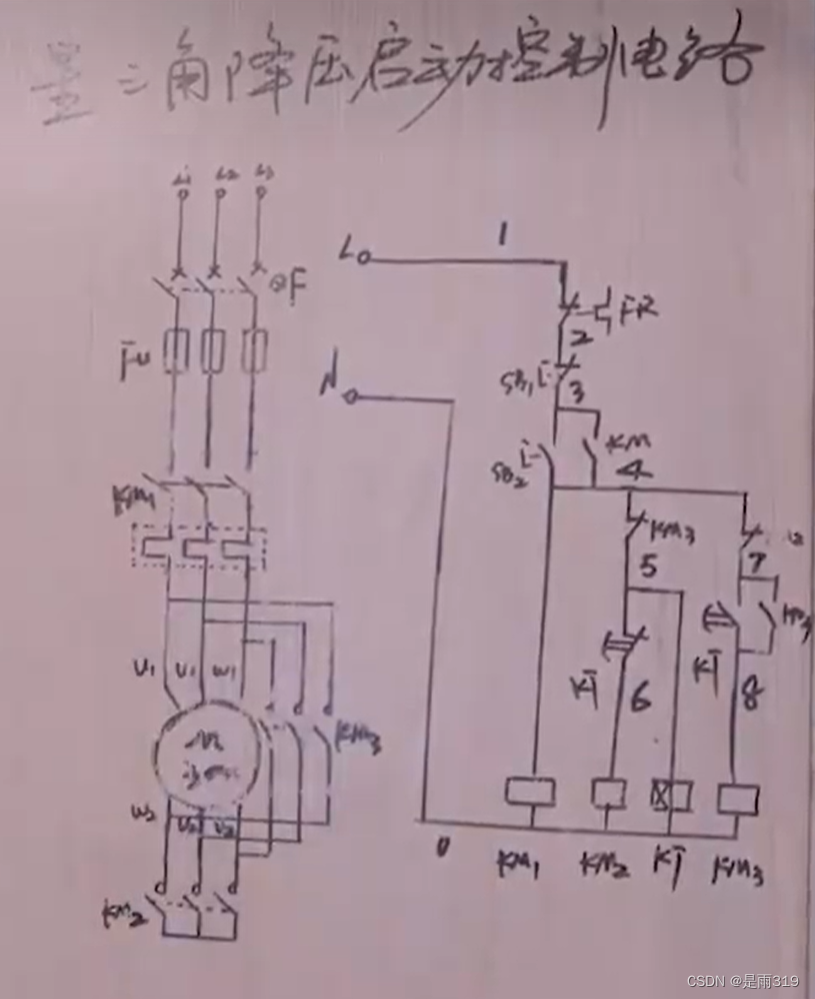 星三角降压启动控制电路
L1 L2 L3
QF
FU
KM1
U1 V1 W1
KM3
W2 U2 V2
KM2
L
1
FR
2
SB1
3
N
SB2
KM
4
KM3
5
7
KT
6
KT
8
0
KM1 KM2 KT KM3
CSDN @是雨319